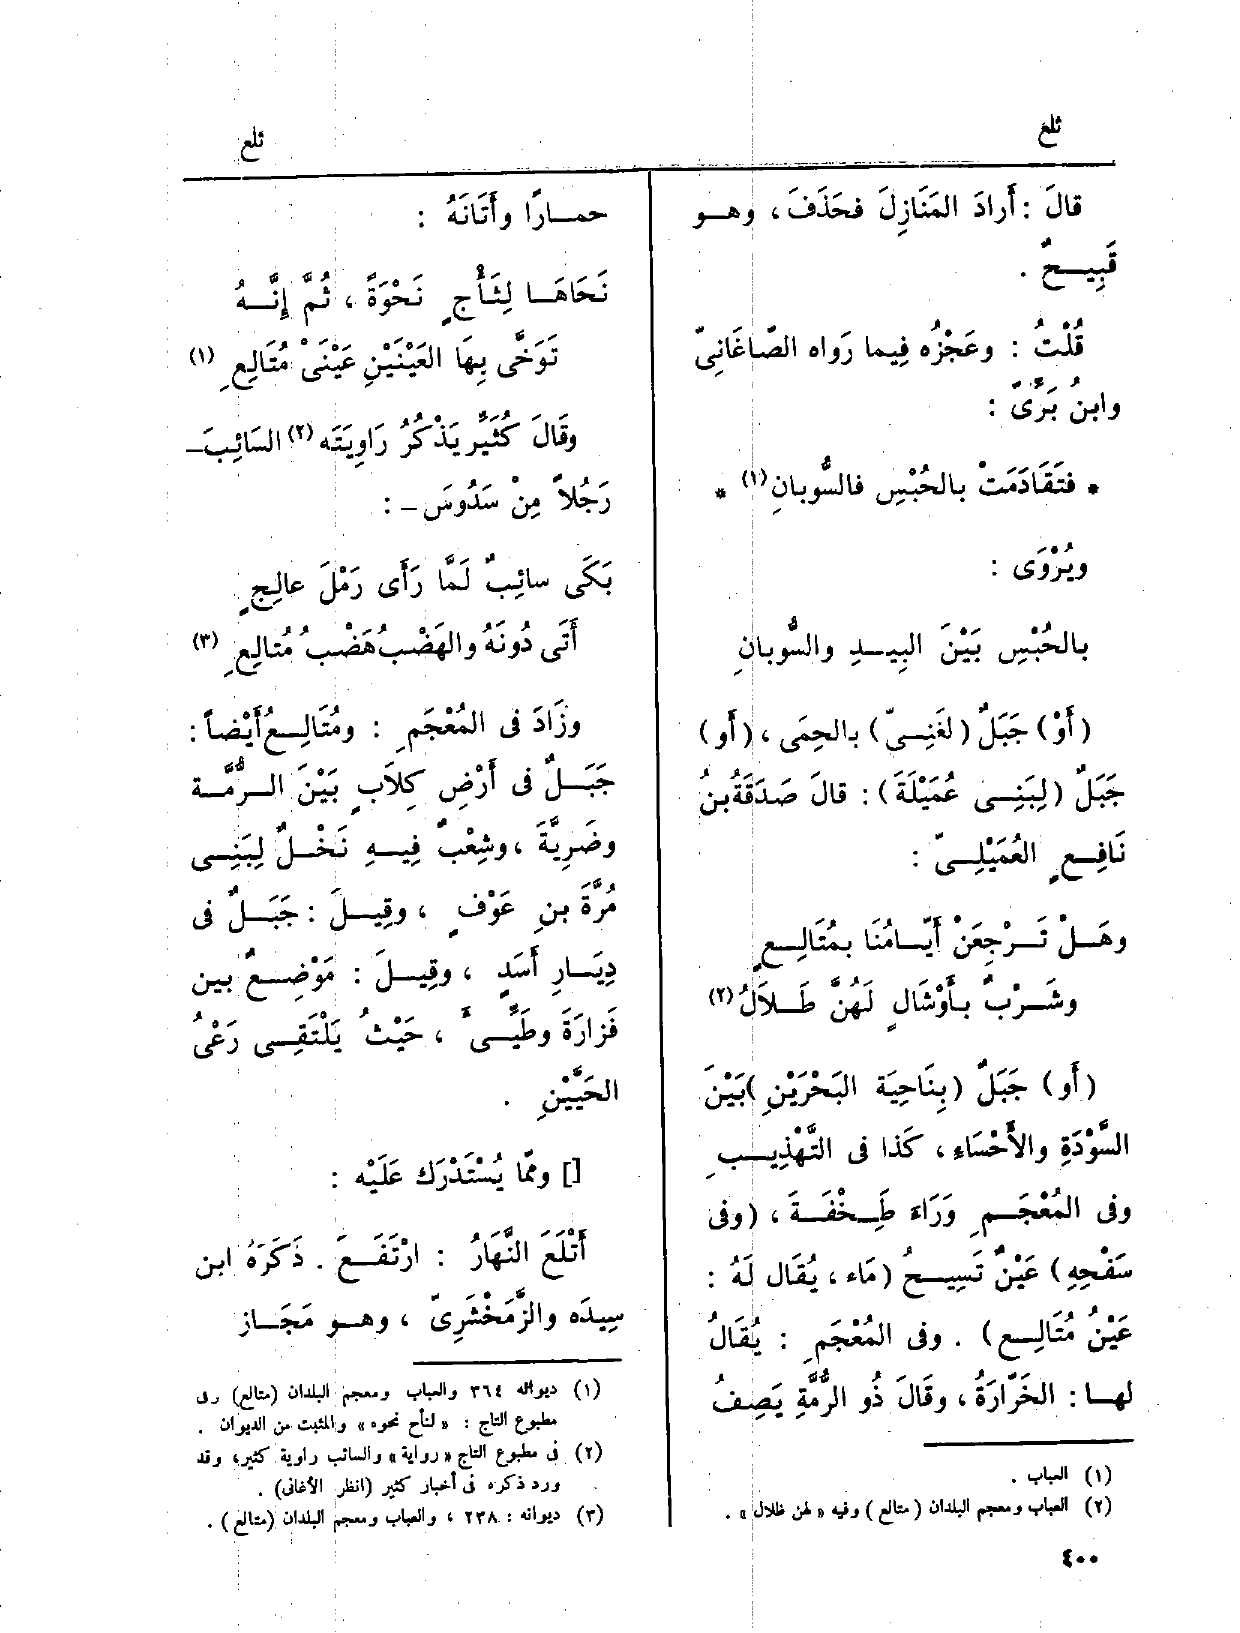 ثلع
ثلع
قالَ : أَرادَ المَنَازِلَ فحَذَفَ ، وهــو
قَبِيــحٌ .
قُلْتُ : وعَجْزُه فِيما رَواه الصّاغَانِىّ
وابنُ بَرِّىّ :
* فتَقَادَمَتْ بالحُبْسِ فالسُّوبانِ (١) *
ويُرْوَى :
بالحُبْسِ بَيْنَ البِيــدِ والسُّوبانِ
( أَوْ ) جَبَلٌ ( لغَنِــىّ ) بالحِمَى ، ( أَو )
جَبَلٌ ( لِبَنِــى عُمَيْلَةَ ) : قالَ صَدَقَةُ بنُ
نَافِــعٍ العُمَيْلِــىّ :
وهَــلْ تَــرْجِعَنْ أَيّــامُنَا بمُتَالِــعٍ
وشَــرْبٌ بــأَوْشَالٍ لَهُنَّ ظَــلاَلُ (٢)
( أَو ) جَبَلٌ ( بِنَاحِيَة البَحْرَيْنِ ) بَيْنَ
السَّوْدَةِ والأَحْسَاءِ ، كَذا فى التَّهْذِيــبِ
وفى المُعْجَــمِ وَرَاءَ طَــخْفَــةَ ، ( وفى
سَفْحِهِ ) عَيْنٌ تَسِيــحُ ( مَاء ، يُقَال لَهُ :
عَيْنُ مُتَالِــع ) . وفى المُعْجَمِ : يُقَالُ
لهــا : الخَرّارَةُ ، وقَالَ ذُو الرُّمَّةِ يَصِفُ
(١) العباب .
(٢) العباب ومعجم البلدان ( متالع ) وفيه « لهن ظلال » .
حمــارًا وأَتَانَهُ :
نَحَاهَــا لِثَأْجٍ نَحْوَةً ، ثُمَّ إِنَّــهُ
تَوَخَّى بِهَا العَيْنَيْنِ عَيْنَىْ مُتَالِعِ (١)
وقَالَ كُثَيِّر يَذْكُرُ رَاوِيَتَه (٢) السَائِبَ –
رَجُلاً مِنْ سَدُوسَ – :
بَكَى سائِبٌ لَمَّا رَأَى رَمْلَ عالِجٍ
أَتَى دُونَهُ والهَضْبُ هَضْبُ مُتالِعِ (٣)
وزَادَ فى المُعْجَمِ : ومُتَالِــعُ أَيْضاً :
جَبَــلٌ فى أَرْضِ كِلاَبٍ بَيْنَ الــرُّمَّــة
وضَرِيَّةَ ، وشِعْبٌ فِيــهِ نَخْــلٌ لِبَنِــى
مُرَّةَ بنِ عَوْفٍ ، وقِيــلَ : جَبَــلٌ فى
دِيَــارِ أَسَدٍ ، وقِيــلَ : مَوْضِــعٌ بين
فَزارَةَ وطَيِّــىءٍ ، حَيْثُ يَلْتَقِــى رَعْىُ
الحَيَّيْنِ .
[] وممّا يُسْتَدْرَك عَلَيْه :
أَتْلَعَ النَّهَارُ : ارْتَفَــعَ . ذَكَرَهُ ابن
سِيدَه والزَّمَخْشَرِىّ ، وهــو مَجَــاز
(١) ديوانه ٣٦٤ والعباب ومعجم البلدان (متالع) وفى
مطبوع التاج : « لثأح نحوه » والمثبت من الديوان .
(٢) فى مطبوع التاج « رواية » والسائب راوية كثير، وقد
ورد ذكره فى أخبار كثير (انظر الأغانى) .
(٣) ديوانه : ٢٣٨ ، والعباب ومعجم البلدان (متالع) .
٤٠٠